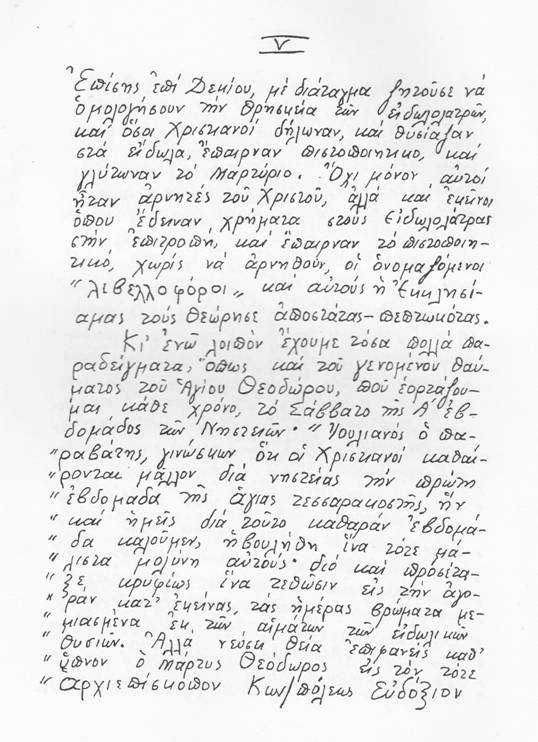 V
Ἐπίσης ἐπί Δεκίου, μέ διάταγμα ζητοῦσε νά
ὁμολογήσουν τήν θρησκεία τῶν εἰδωλολατρῶν,
καί ὅσοι Χριστιανοί δήλωναν, καί θυσίαζαν
στά εἴδωλα, ἔπαιρναν πιστοποιητικο, καί
γλύτωναν τό μαρτύριο. Ὄχι μόνον αὐτοί
ἦταν ἀρνητές τοῦ Χριστοῦ, ἀλλά καί ἐκεῖνοι
ὅπου ἔδειναν χρήματα στούς εἰδωλολάτρας
στήν ἐπιτροπή, καί ἔπαιρναν τό πιστοποιη-
τικό, χωρίς νά ἀρνηθοῦν, οἱ ὀνομαζόμενοι
"λιβελλοφόροι" καί αὐτούς ἡ Ἐκκλησί-
αμας τούς θεώρησε ἀποστάτας-πεπτωκότας.
Κι' ἐνῶ λοιπόν ἔχουμε τόσα πολλά πα-
ραδείγματα, ὅπως καί τοῦ γενομένου θαύ-
ματος τοῦ Ἁγίου Θεοδώρου, πού ἑορτάζου-
μαι κάθε χρόνο, τό Σάββατο τῆς Α' ἑβ-
δομάδος τῶν Νηστειῶν· "Ἰουλιανός ὁ πα-
"ραβάτης, γινώσκων ὅτι οἱ Χριστιανοί καθαί-
"ρονται μᾶλλον διά νηστείας τήν πρώτη
"ἑβδομάδα τῆς ἁγίας τεσσαρακοστῆς, ἥν
"καί ἡμεῖς διά τοῦτο καθαράν ἑβδομά-
"δα καλοῦμεν, ἠβουλήθη ἵνα τότε μά-
"λιστα μολύνη αὐτούς· διό καί προσέτα-
"ξε κρυφίως ἵνα τεθῶσιν εἰς τήν ἀγο-
"ράν κατ' ἐκείνας, τάς ἡμέρας βρώματα με-
"μιασμένα ἐκ τῶν αἱμάτων τῶν εἰδωλικῶν
"θυσιῶν. Ἀλλά νεύσει θεία ἐπιφανείς καθ'
"ὕπνον ὁ μάρτυς Θεόδωρος εἰς τόν τότε
"ἀρχιεπίσκοπον Κων/πόλεως Εὐδόξιον